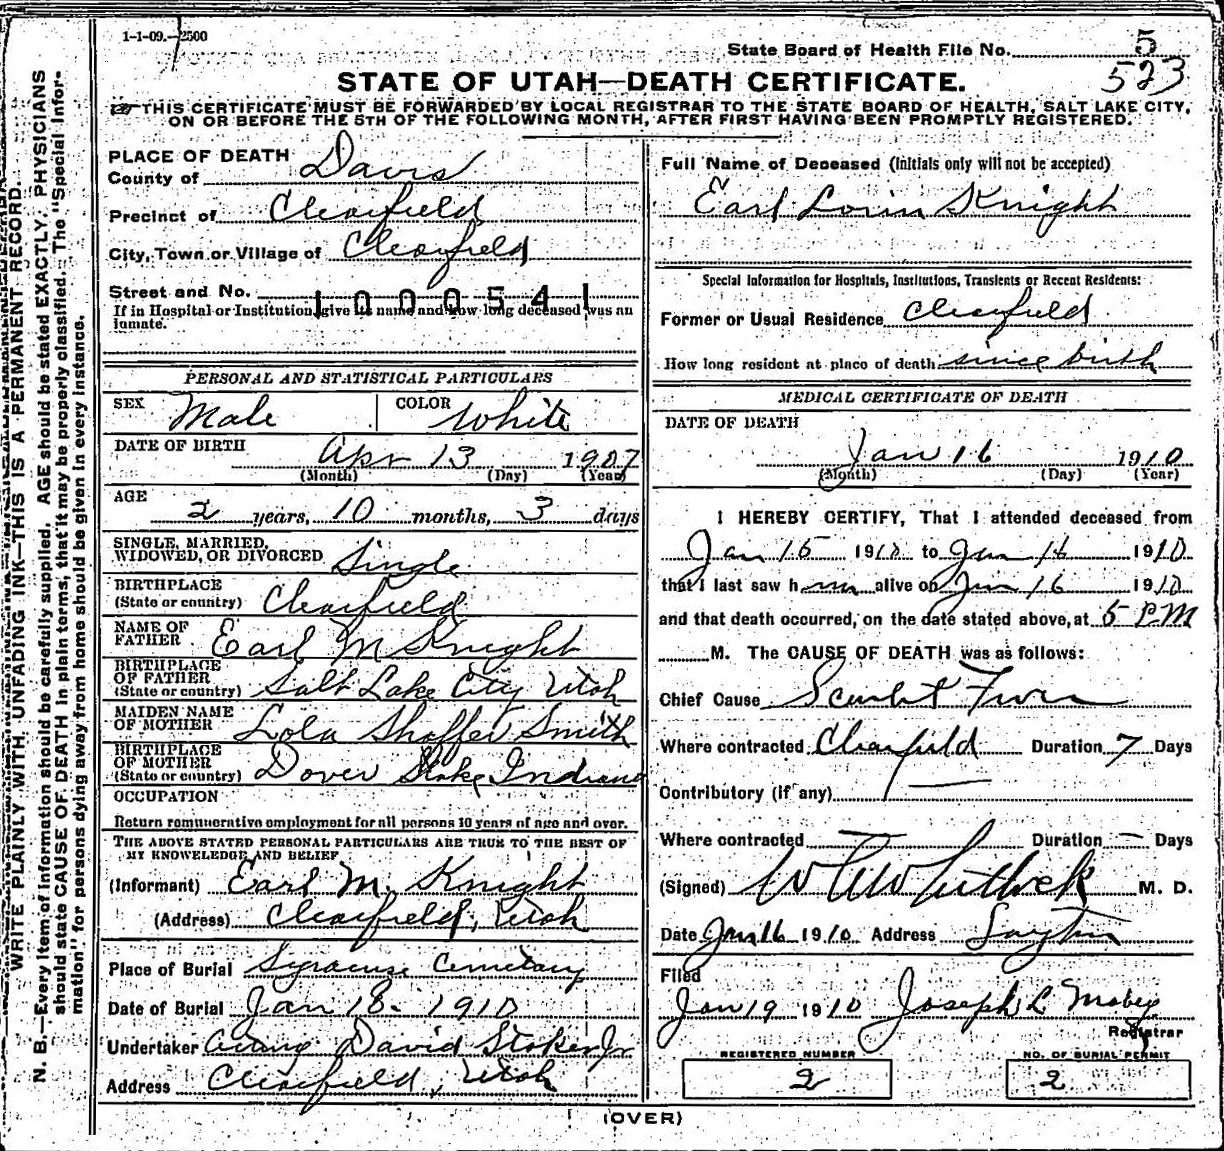 1-1-09.—2500
State Board of Health File No. 5
523
STATE OF UTAH—DEATH CERTIFICATE.
☞THIS CERTIFICATE MUST BE FORWARDED BY LOCAL REGISTRAR TO THE STATE BOARD OF HEALTH, SALT LAKE CITY,
ON OR BEFORE THE 5TH OF THE FOLLOWING MONTH, AFTER FIRST HAVING BEEN PROMPTLY REGISTERED.
N. B.—Every item of information should be carefully supplied. AGE should be stated EXACTLY. PHYSICIANS
should state CAUSE OF DEATH in plain terms, that it may be properly classified. The "Special Infor-
mation" for persons dying away from home should be given in every instance.
WRITE PLAINLY WITH UNFADING INK—THIS IS A PERMANENT RECORD.
PLACE OF DEATH
County of Davis
Precinct of Clearfield
City, Town or Village of Clearfield
Street and No. 1000541
If in Hospital or Institution, give its name and how long deceased was an
inmate.
PERSONAL AND STATISTICAL PARTICULARS
SEX Male COLOR White
DATE OF BIRTH Apr 13 1907
(Month) (Day) (Year)
AGE 2 years, 10 months, 3 days
SINGLE, MARRIED,
WIDOWED, OR DIVORCED Single
BIRTHPLACE
(State or country) Clearfield
NAME OF
FATHER Earl M Knight
BIRTHPLACE
OF FATHER
(State or country) Salt Lake City Utah
MAIDEN NAME
OF MOTHER Lola Shaffer Smith
BIRTHPLACE
OF MOTHER
(State or country) Dover Indiana
OCCUPATION
Return remunerative employment for all persons 10 years of age and over.
THE ABOVE STATED PERSONAL PARTICULARS ARE TRUE TO THE BEST OF
MY KNOWLEDGE AND BELIEF
(Informant) Earl M. Knight
(Address) Clearfield, Utah
Place of Burial Syracuse Cemetary
Date of Burial Jan 18. 1910
Undertaker David Stoker Jr
Address Clearfield, Utah
Full Name of Deceased (Initials only will not be accepted)
Earl Lorin Knight
Special Information for Hospitals, Institutions, Transients or Recent Residents:
Former or Usual Residence Clearfield
How long resident at place of death since birth
MEDICAL CERTIFICATE OF DEATH
DATE OF DEATH
Jan 16 1910
(Month) (Day) (Year)
I HEREBY CERTIFY, That I attended deceased from
Jan 15 1910 to Jan 16 1910
that I last saw h im alive on Jan 16 1910
and that death occurred, on the date stated above, at 5 PM
M. The CAUSE OF DEATH was as follows:
Chief Cause Scarlet Fever
Where contracted Clearfield Duration 7 Days
Contributory (if any) —
Where contracted — Duration — Days
(Signed) M. D.
Date Jan 16 1910 Address Layton
Filed
Jan 19 1910 Joseph L
Registrar
REGISTERED NUMBER
2
NO. OF BURIAL PERMIT
2
(OVER)